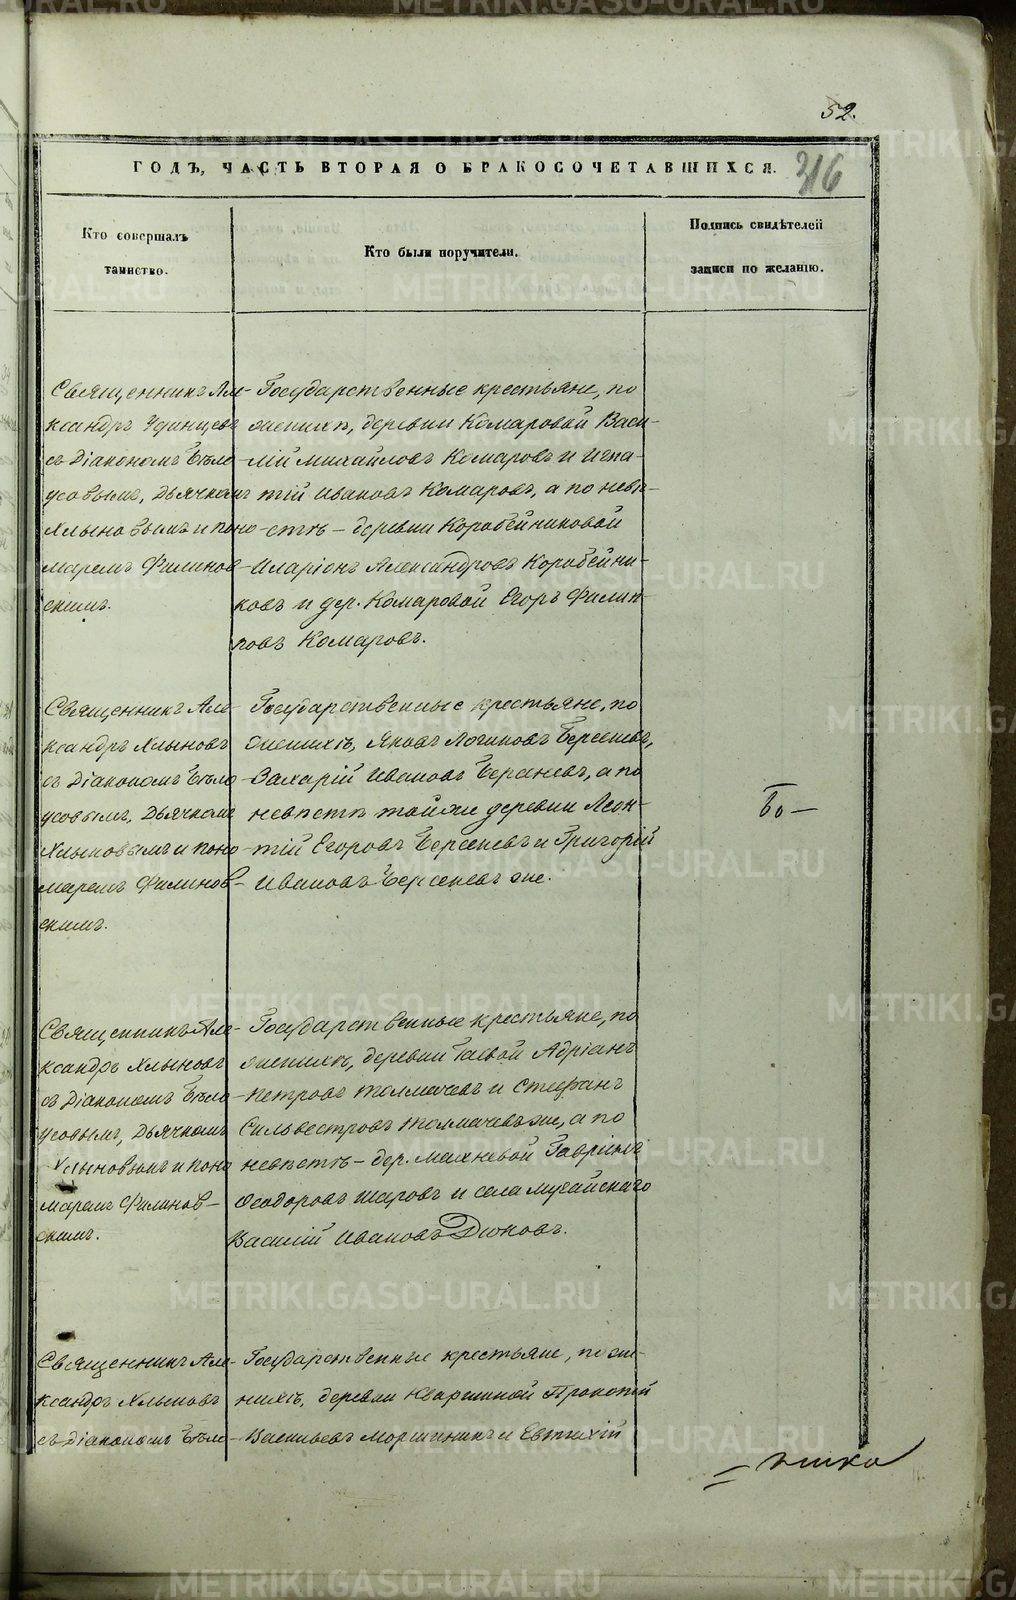 52.
ГОДЪ, ЧАСТЬ ВТОРАЯ О БРАКОСОЧЕТАВШИХСЯ.
316
Кто совершалъ
таинство.
Кто были поручители.
Подпись свидѣтелей
записи по желанію.
Священникъ Але-
ксандръ Удинцевъ
съ Діакономъ Бѣло-
усовымъ, Дьячкомъ
Хлыновымъ и поно-
маремъ Филинов-
скимъ.
Государственные крестьяне, по
женихѣ, деревни Комаровой Васи-
лій Михайловъ Комаровъ и Игна-
тій Ивановъ Комаровъ, а по невѣ-
стѣ – деревни Коробейниковой
Иларіонъ Александровъ Коробейни-
ковъ и дер. Комаровой Егоръ Филип-
повъ Комаровъ.
Священникъ Але-
ксандръ Хлыновъ
съ Діакономъ Бѣло-
усовымъ, Дьячкомъ
Хлыновымъ и поно-
маремъ Филинов-
скимъ.
Государственные крестьяне, по
женихѣ, Яковъ Логиновъ Берсеневъ,
Захарій Ивановъ Берсеневъ, а по
невѣстѣ тойже деревни Леон-
тій Егоровъ Берсеневъ и Григорій
Ивановъ Берсеневъ же.
Священникъ Але-
ксандръ Хлыновъ
съ Діакономъ Бѣло-
усовымъ, Дьячкомъ
Хлыновымъ и поно-
маремъ Филинов-
скимъ.
Государственные крестьяне, по
женихѣ, деревни Адріанъ
Петровъ Толмачевъ и Стефанъ
Сильвестровъ Толмачевъ же, а по
невѣстѣ – дер. Махневой Гавріилъ
Ѳеодоровъ Шаровъ и села Мугайскаго
Василій Ивановъ Дюковъ.
Священникъ Але-
ксандръ Хлыновъ
съ Діакономъ Бѣло-
Государственные крестьяне, по же-
нихѣ, деревни Прокопій
Васильевъ Моршининъ и Евтихій
METRIKI.GASO-URAL.RU